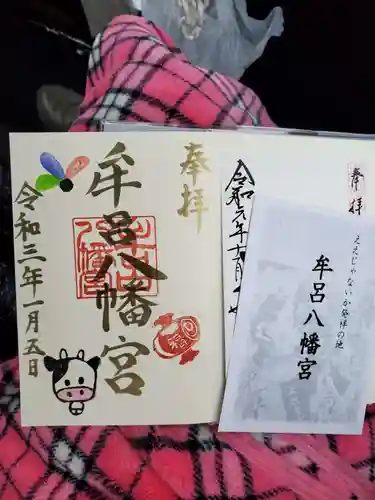 奉拝
牟呂八幡宮
令和三年一月五日
奉拝
令和元年
ええじゃないか発祥の地
牟呂八幡宮